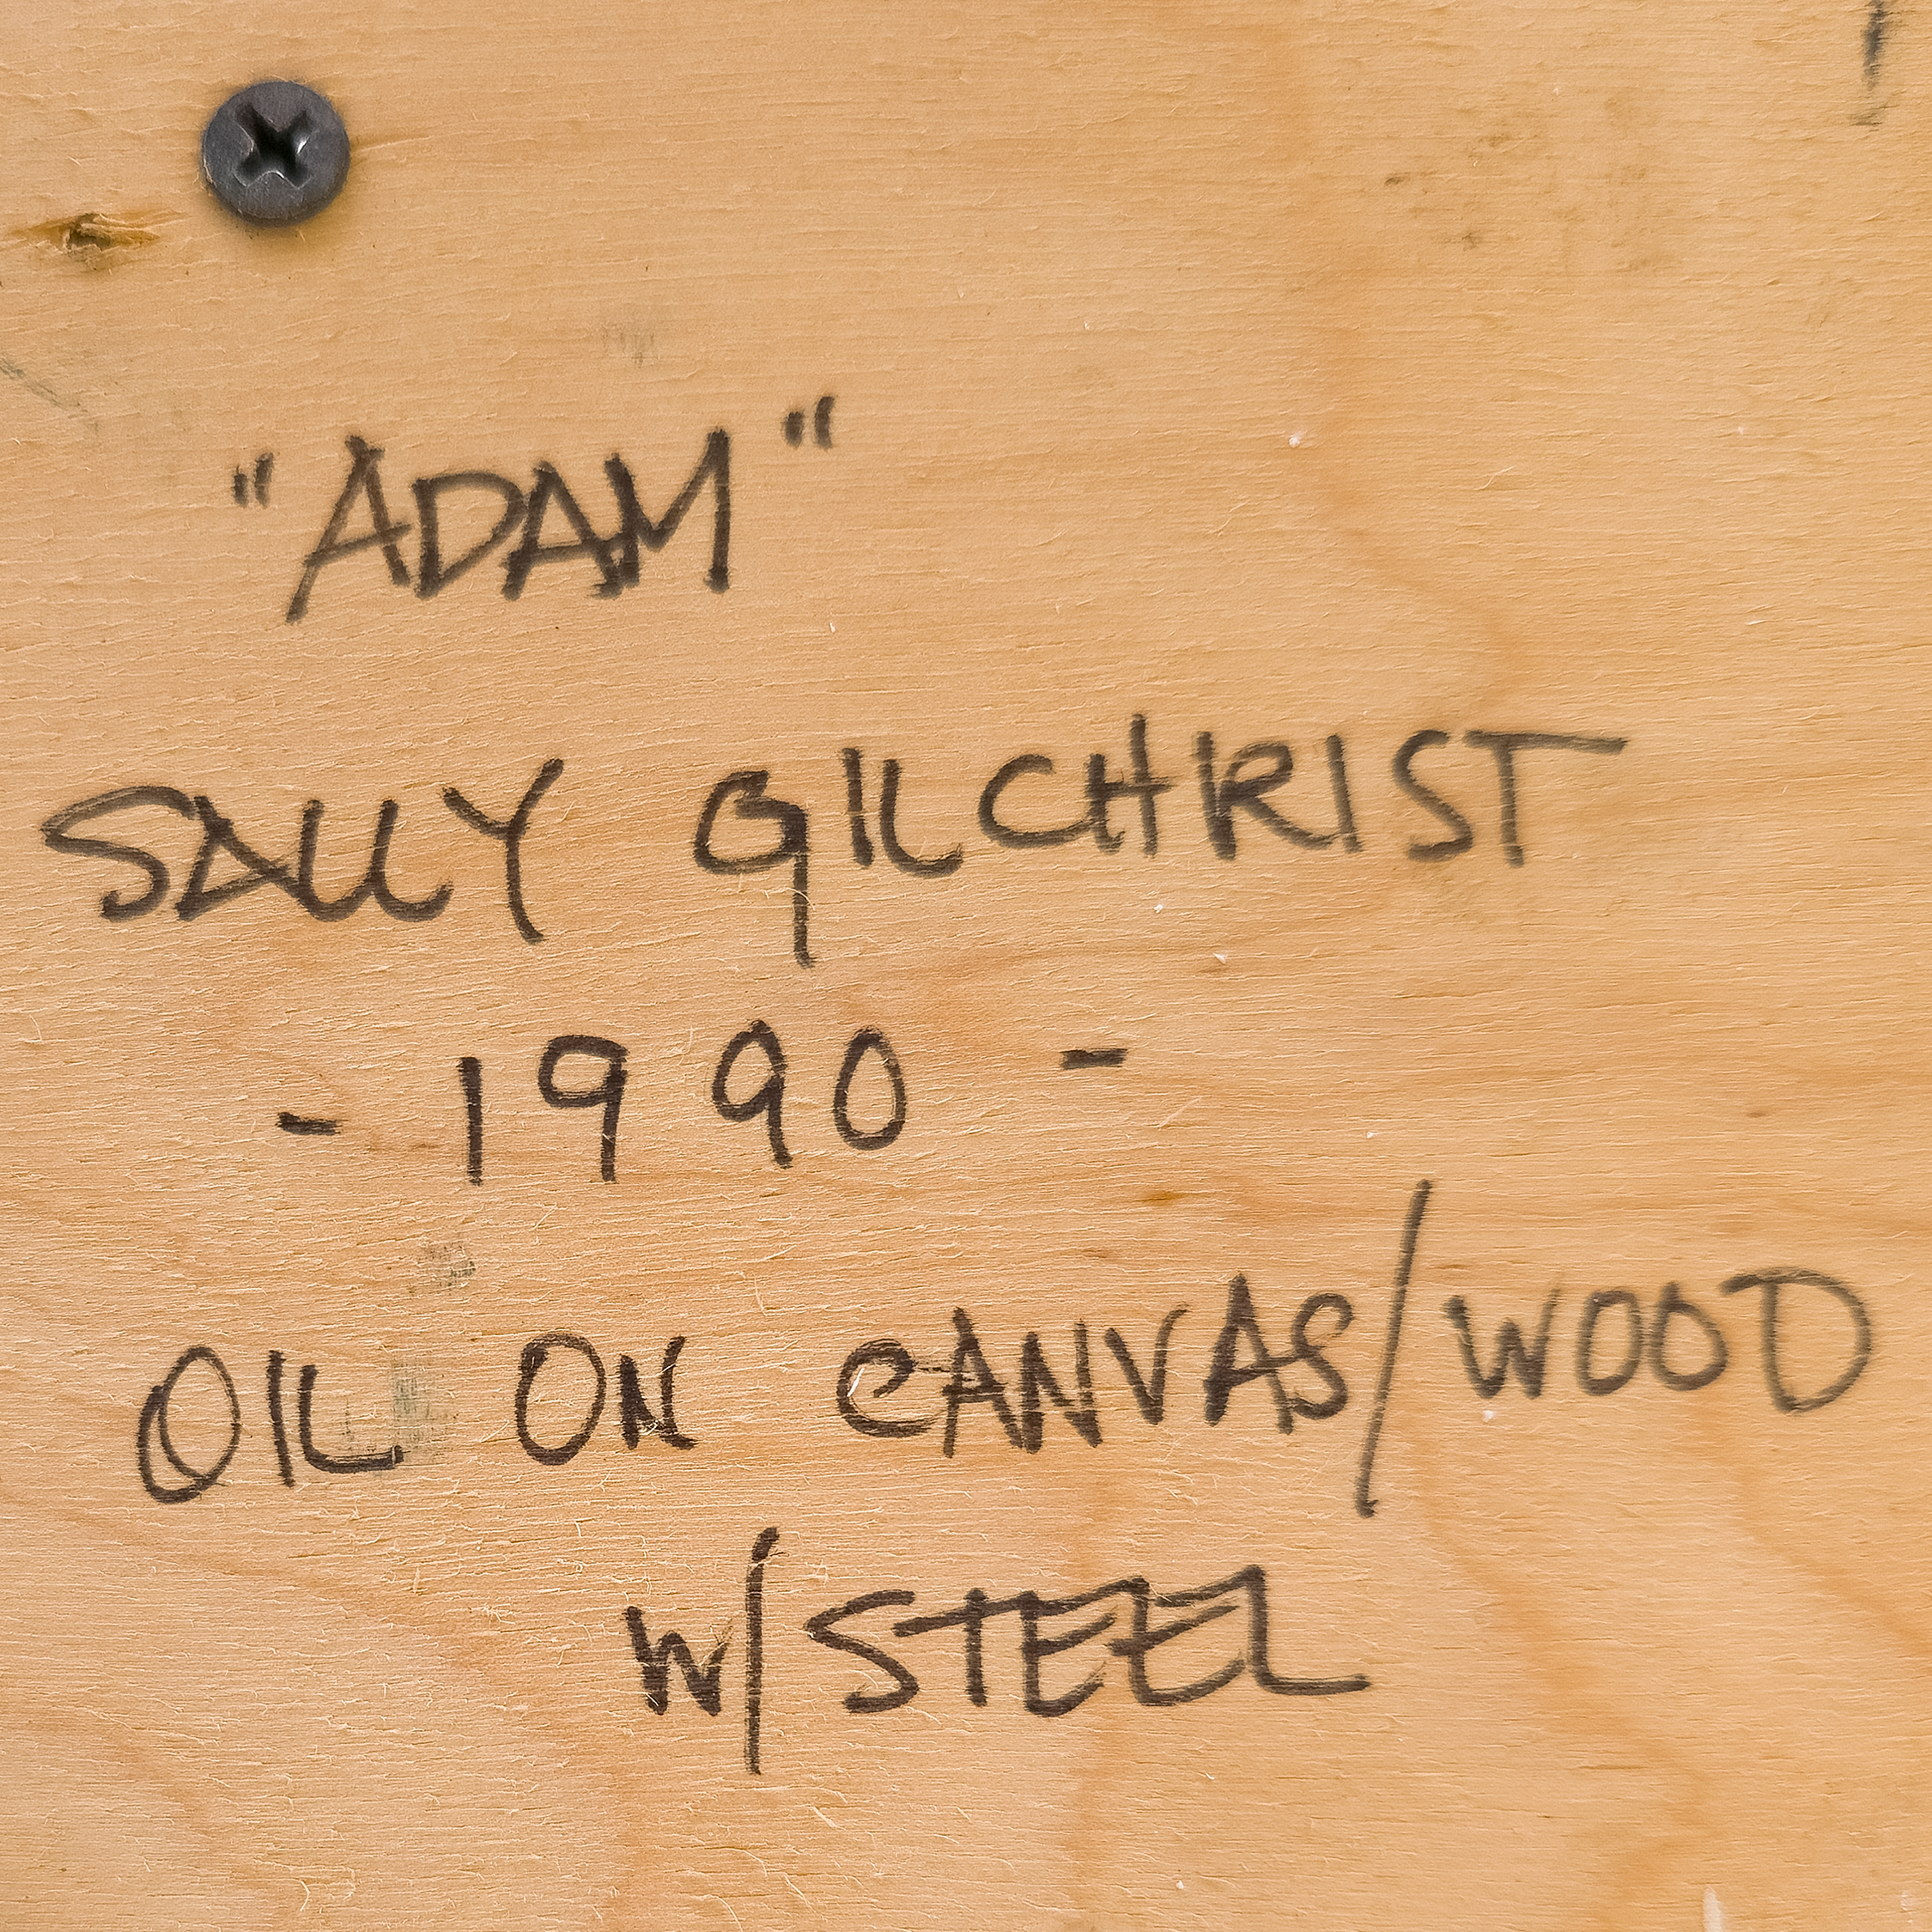 "ADAM"
SALLY GILCHRIST
- 1990 -
OIL ON CANVAS/WOOD
W/STEEL